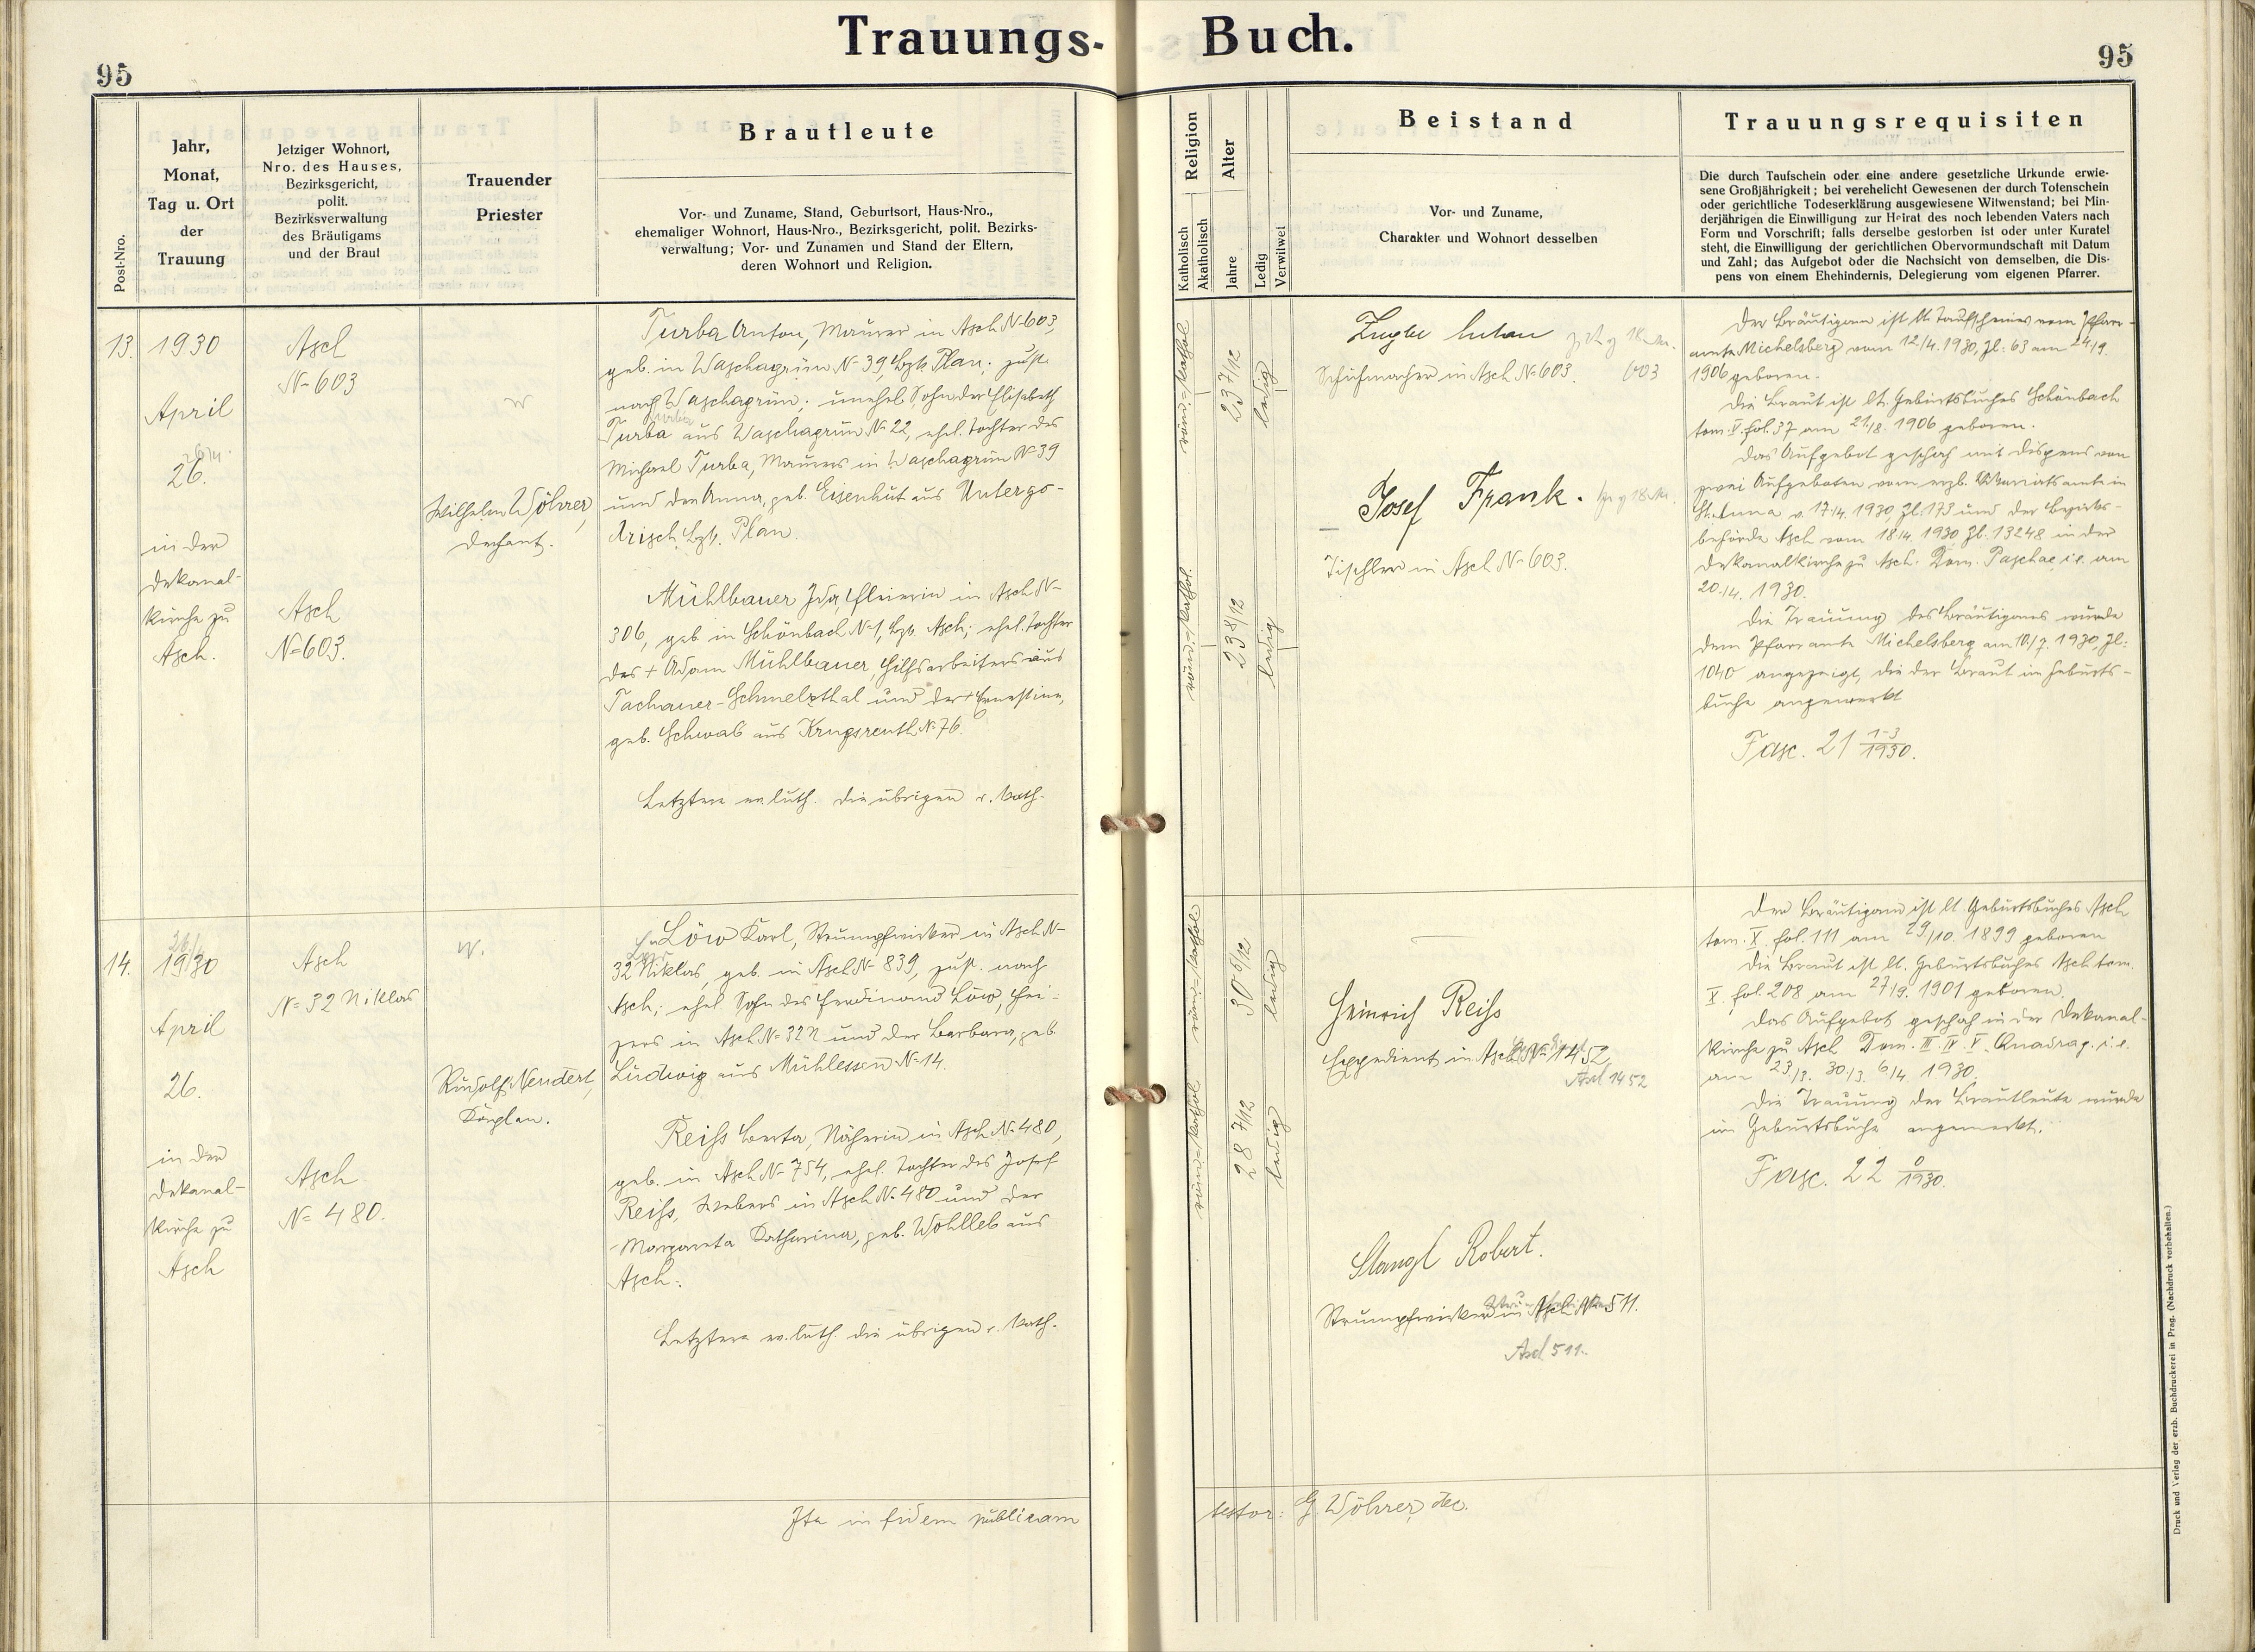 Trauungs-
Buch.
95
95
Post-Nro.
Jahr,
Monat,
Tag u. Ort
der
Trauung
Jetziger Wohnort,
Nro. des Hauses,
Bezirksgericht,
polit.
Bezirksverwaltung
des Bräutigams
und der Braut
Trauender
Priester
Brautleute
Vor- und Zuname, Stand, Geburtsort, Haus-Nro.,
ehemaliger Wohnort, Haus-Nro., Bezirksgericht, polit. Bezirks-
verwaltung; Vor- und Zunamen und Stand der Eltern,
deren Wohnort und Religion.
Religion
Katholisch
Akatholisch
Alter
Jahre
Ledig
Verwitwet
Beistand
Vor- und Zuname,
Charakter und Wohnort desselben
Trauungsrequisiten
Die durch Taufschein oder eine andere gesetzliche Urkunde erwie-
sene Großjährigkeit; bei verehelicht Gewesenen der durch Totenschein
oder gerichtliche Todeserklärung ausgewiesene Witwenstand; bei Min-
derjährigen die Einwilligung zur Heirat des noch lebenden Vaters nach
Form und Vorschrift; falls derselbe gestorben ist oder unter Kuratel
steht, die Einwilligung der gerichtlichen Obervormundschaft mit Datum
und Zahl; das Aufgebot oder die Nachsicht von demselben, die Dis-
pens von einem Ehehindernis, Delegierung vom eigenen Pfarrer.
13.
1930
April
26.
in der
Dekanal-
kirche zu
Asch.
Asch
N= 603
Asch
N=603.
W
Wilhelm Wöhrer,
Dechant.
Turba Anton, Maurer in Asch N=603,
geb. in Waschagrün N= 39, Bzk Plan; zust.
nach Waschagrün; unehel. Sohn der Elisabeth
Turba aus Waschagrün N= 22, ehel. Tochter des
Michael Turba, Maurers in Waschagrün N= 39
und der Anna, geb. Eisenhut aus Untergo-
drisch, Bzk. Plan.
Mühlbauer Ida, in Asch N=
306, geb. in Schönbach N=1, Bzk. Asch; ehel. Tochter
des + Adam Mühlbauer, Hilfsarbeiters aus
Tachauer-Schmelzthal und der + Ernestine,
geb. Schwab aus Krugsreuth N= 76.
Letztere ev. luth. die übrigen r. kath.
röm.=kathol.
23 7/12
ledig
röm.=kathol.
23 8/12
ledig
Anton
Schuhmacher in Asch N= 603.
603
Josef Frank.
Tischler in Asch N= 603.
Der Bräutigam ist lt. Taufscheines vom Pfarr-
amte Michelsberg vom 12/4. 1930, Zl: 63 am 24/9.
1906 geboren.
Die Braut ist lt. Geburtsbuches Schönbach
tom. V. fol. 37 am 21/8. 1906 geboren.
Das Aufgebot geschah mit Dispens von
zwei Aufgeboten vom erzb. Vikariatsamte in
St. Anna v. 17/4. 1930, Zl: 173 und der Bezirks-
behörde Asch vom 18/4. 1930 Zl. 13248 in der
Dekanalkirche zu Asch. Dom. Paschae i. e. am
20./4. 1930.
Die Trauung des Bräutigams wurde
dem Pfarramte Michelsberg am 10/7. 1930, Zl:
1040 angezeigt, die der Braut im Geburts-
buche angemerkt
Fasc. 21 1-3/1930.
14.
26/4
1930
April
26.
in der
Dekanal-
kirche zu
Asch
Asch
N= 32 Niklas
Asch
N= 480.
W.
Rudolf Neudert,
Kaplan.
Löw Karl, Strumpfwirker in Asch N=
32 Niklas, geb. in Asch N= 839, zust. nach
Asch; ehel. Sohn des Ferdinand Löw, Hei-
zers in Asch N= 32 N und der Barbara, geb.
Ludwig aus Mühlessen N= 14.
Reihs Berta, Näherin in Asch N= 480,
geb. in Asch N= 754, ehel. Tochter des Josef
Reihs, Webers in Asch N= 480 und der
Margareta Katharina, geb. Wohlleb aus
Asch.
Letztere ev. luth. die übrigen r. kath.
röm.=kathol
30 5/12
ledig
röm.=kathol
28 7/12
ledig
Heinrich Reihs
Expedient in Asch N= 1452
Asch 1452
Stangl Robert.
Strumpfwirker in Asch N= 511.
Asch 511.
Der Bräutigam ist lt. Geburtsbuches Asch
tom. X. fol. 111 am 29/10. 1899 geboren
Die Braut ist lt. Geburtsbuches Asch tom.
X. fol. 208 am 27/9. 1901 geboren.
Das Aufgebot geschah in der Dekanal-
kirche zu Asch Dom. III. IV. V. Quadrag. i. e.
am 23/3. 30/3. 6/4. 1930.
Die Trauung der Brautleute wurde
im Geburtsbuche angemerkt.
Fasc. 22 0/1930.
Ita in fidem publicam
testor: G. Wöhrer, dec.
Druck und Verlag der erzb. Buchdruckerei in Prag. (Nachdruck vorbehalten.)